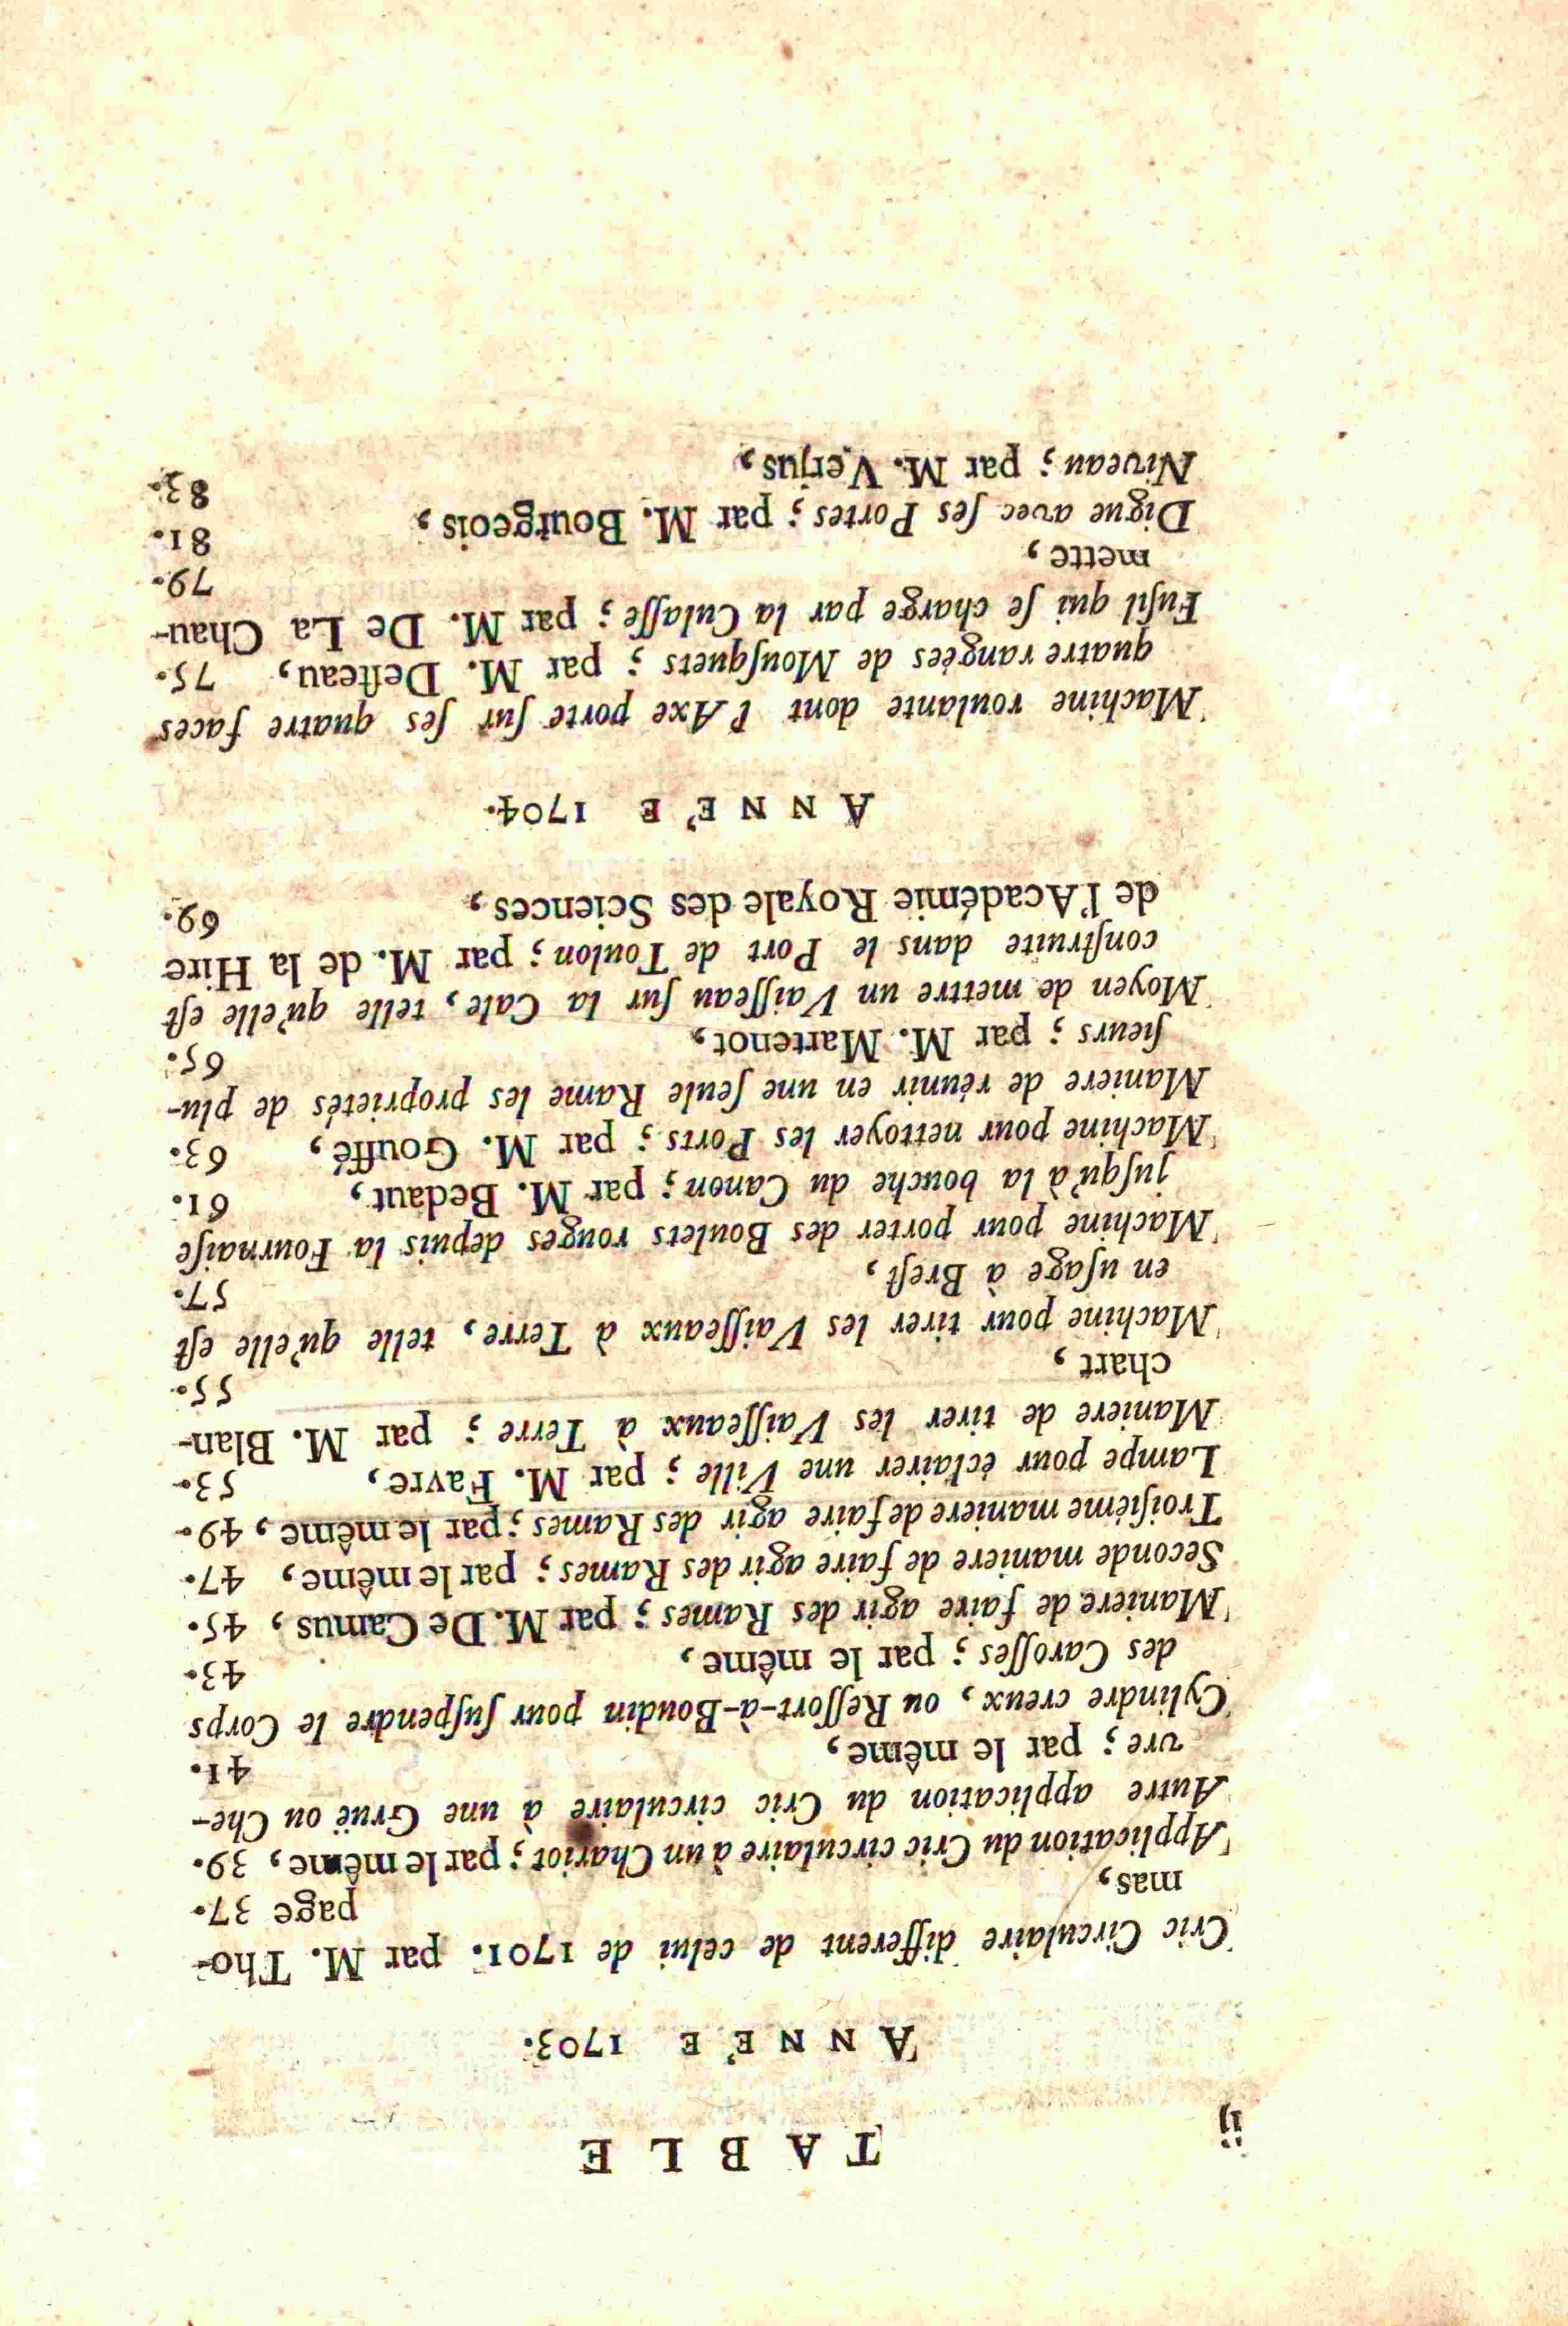 ij
T A B L E
A N N E' E 1703.
Cric Circulaire different de celui de 1701. par M. Tho-
mas, page 37.
Application du Cric circulaire à un Chariot ; par le même, 39.
Autre application du Cric circulaire à une Gruë ou Che-
vre ; par le même, 41.
Cylindre creux, ou Reſſort-à-Boudin pour ſuſpendre le Corps
des Caroſſes ; par le même, 43.
Maniere de faire agir des Rames ; par M. De Camus, 45.
Seconde maniere de faire agir des Rames ; par le même, 47.
Troiſiéme maniere de faire agir des Rames ; par le même, 49.
Lampe pour éclairer une Ville ; par M. Favre, 53.
Maniere de tirer les Vaiſſeaux à Terre ; par M. Blan-
chart, 55.
Machine pour tirer les Vaiſſeaux à Terre, telle qu'elle eſt
en uſage à Breſt, 57.
Machine pour porter des Boulets rouges depuis la Fournaiſe
juſqu'à la bouche du Canon ; par M. Bedaut, 61.
Machine pour nettoyer les Ports ; par M. Gouffé, 63.
Maniere de réunir en une ſeule Rame les proprietés de plu-
ſieurs ; par M. Martenot, 65.
Moyen de mettre un Vaiſſeau ſur la Cale, telle qu'elle eſt
conſtruite dans le Port de Toulon ; par M. de la Hire
de l'Académie Royale des Sciences, 69.
A N N E' E 1704.
Machine roulante dont l'Axe porte ſur ſes quatre faces
quatre rangées de Mouſquets ; par M. Deſteau, 75.
Fuſil qui ſe charge par la Culaſſe ; par M. De La Chau-
mette, 79.
Digue avec ſes Portes ; par M. Bourgeois, 81.
Niveau ; par M. Verjus, 83.